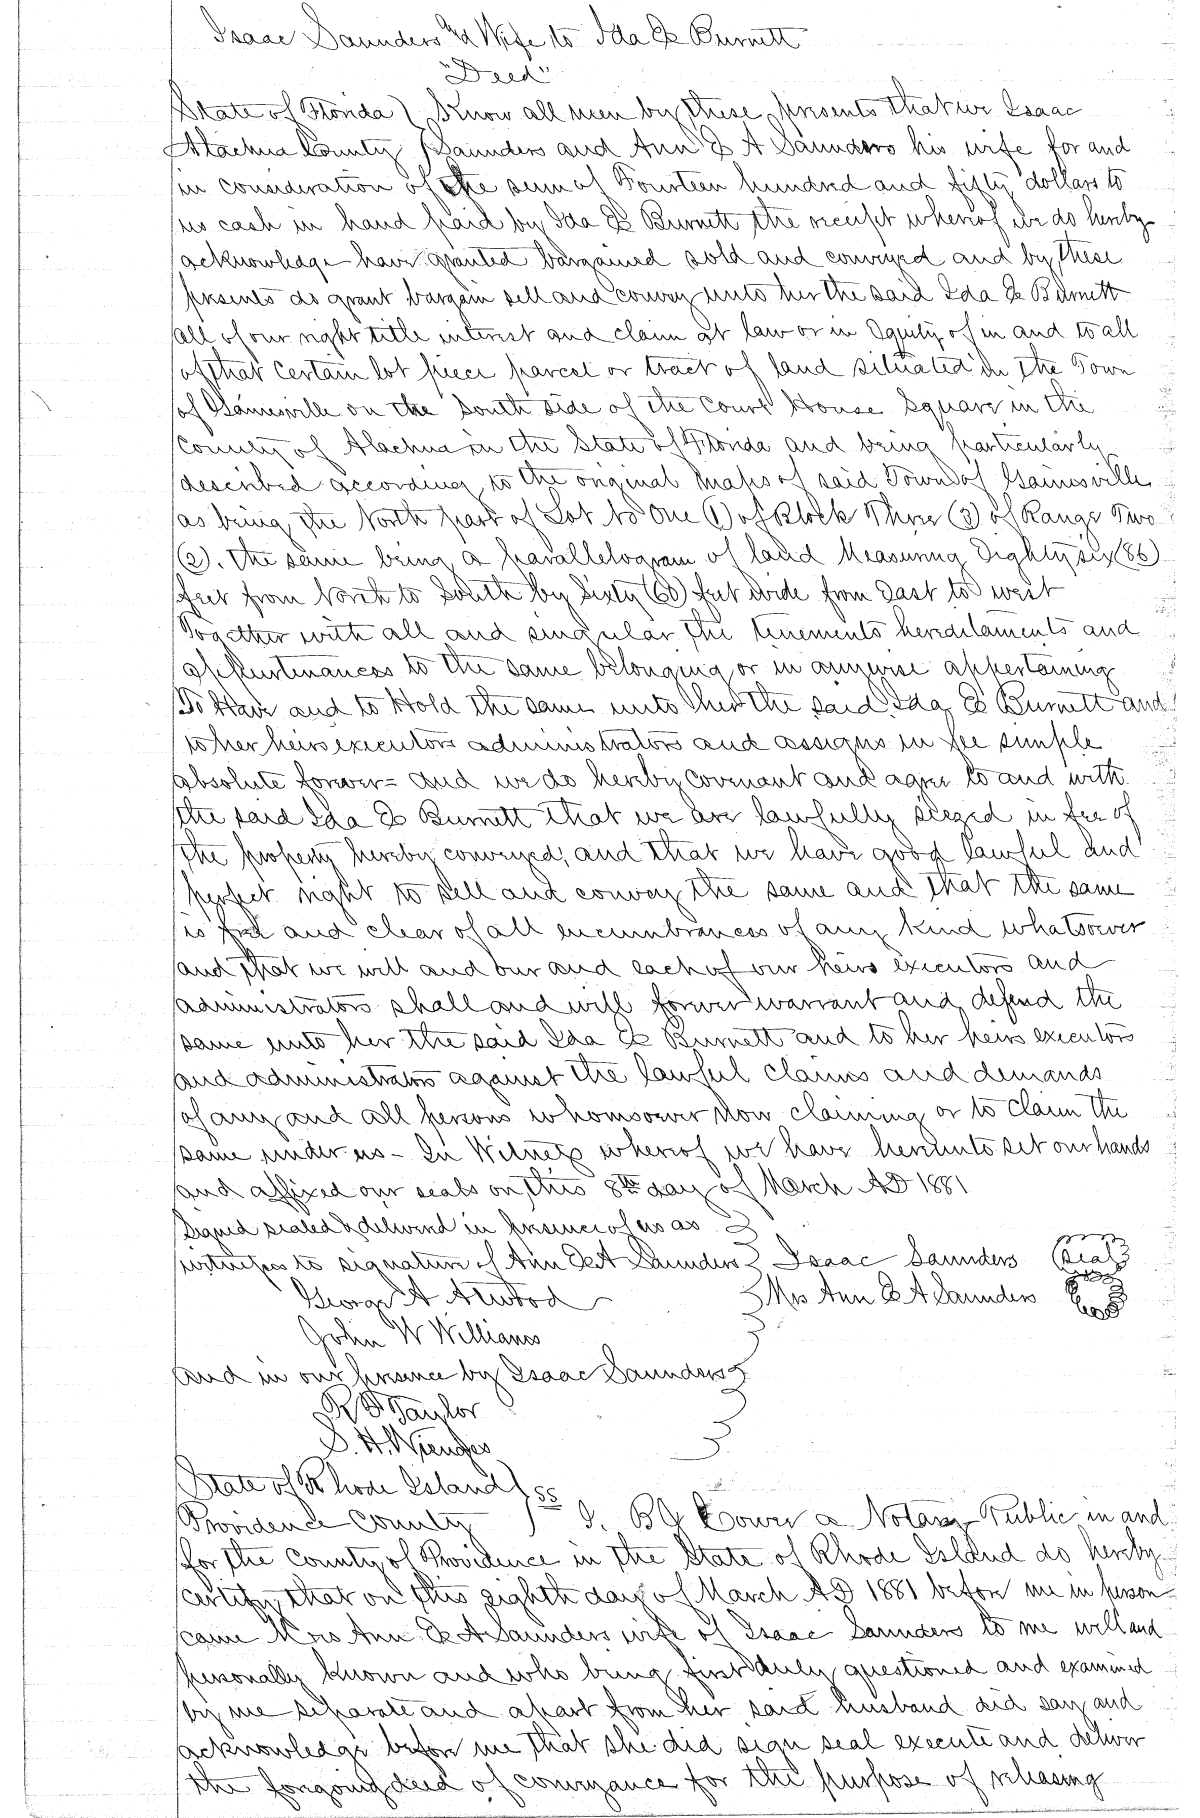 Isaac Saunders and Wife to Ida E Burnett
"Deed"
State of Florida } Know all men by these presents that we Isaac
Alachua County } Saunders and Ann E A Saunders his wife for and
in consideration of the sum of Fourteen hundred and fifty dollars to
us cash in hand paid by Ida E Burnett the receipt whereof we do hereby
acknowledge have granted bargained sold and conveyed and by these
presents do grant bargain sell and convey unto her the said Ida E Burnett
all of our right title interest and claim at law or in Equity of in and to all
of that certain lot piece parcel or tract of land situated in the Town
of Gainesville on the South side of the Court House Square in the
County of Alachua in the State of Florida and being particularly
described according to the original maps of said Town of Gainesville
as being the North part of Lot No One (1) of Block Three (3) of Range Two
(2). the same being a parallelogram of land Measuring Eighty six (86)
feet from North to South by Sixty (60) feet wide from East to west
Together with all and singular the tenements hereditaments and
appurtenances to the same belonging or in anywise appertaining
To Have and to Hold the same unto her the said Ida E Burnett and
to her heirs executors administrators and assigns in fee simple
absolute forever = And we do hereby covenant and agree to and with
the said Ida E Burnett that we are lawfully siezed in fee of
the property hereby conveyed, and that we have good lawful and
perfect right to sell and convey the same and that the same
is free and clear of all encumbrances of any kind whatsoever
and that we will and our and each of our heirs executors and
administrators shall and will forever warrant and defend the
same unto her the said Ida E Burnett and to her heirs executors
and administrators against the lawful claims and demands
of any and all persons whomsoever now claiming or to claim the
same under us - In Witness whereof we have hereunto set our hands
and affixed our seals on this 8th day of March AD 1881
Signed sealed & delivered in presence of us as }
witnesses to signature of Ann E A Saunders } Isaac Saunders (Seal)
George A Atwood } Mrs Ann E A Saunders (Seal)
John W Williams
and in our presence by Isaac Saunders }
R F Taylor
S. H. Wienges
State of Rhode Island } ss
Providence County } I. B J a Notary Public in and
for the County of Providence in the State of Rhode Island do hereby
certify that on this eighth day of March AD 1881 before me in person
came Mrs Ann E A Saunders wife of Isaac Saunders to me well and
personally known and who being first duly questioned and examined
by me separate and apart from her said husband did say and
acknowledge before me that she did sign seal execute and deliver
the foregoing deed of conveyance for the purpose of releasing